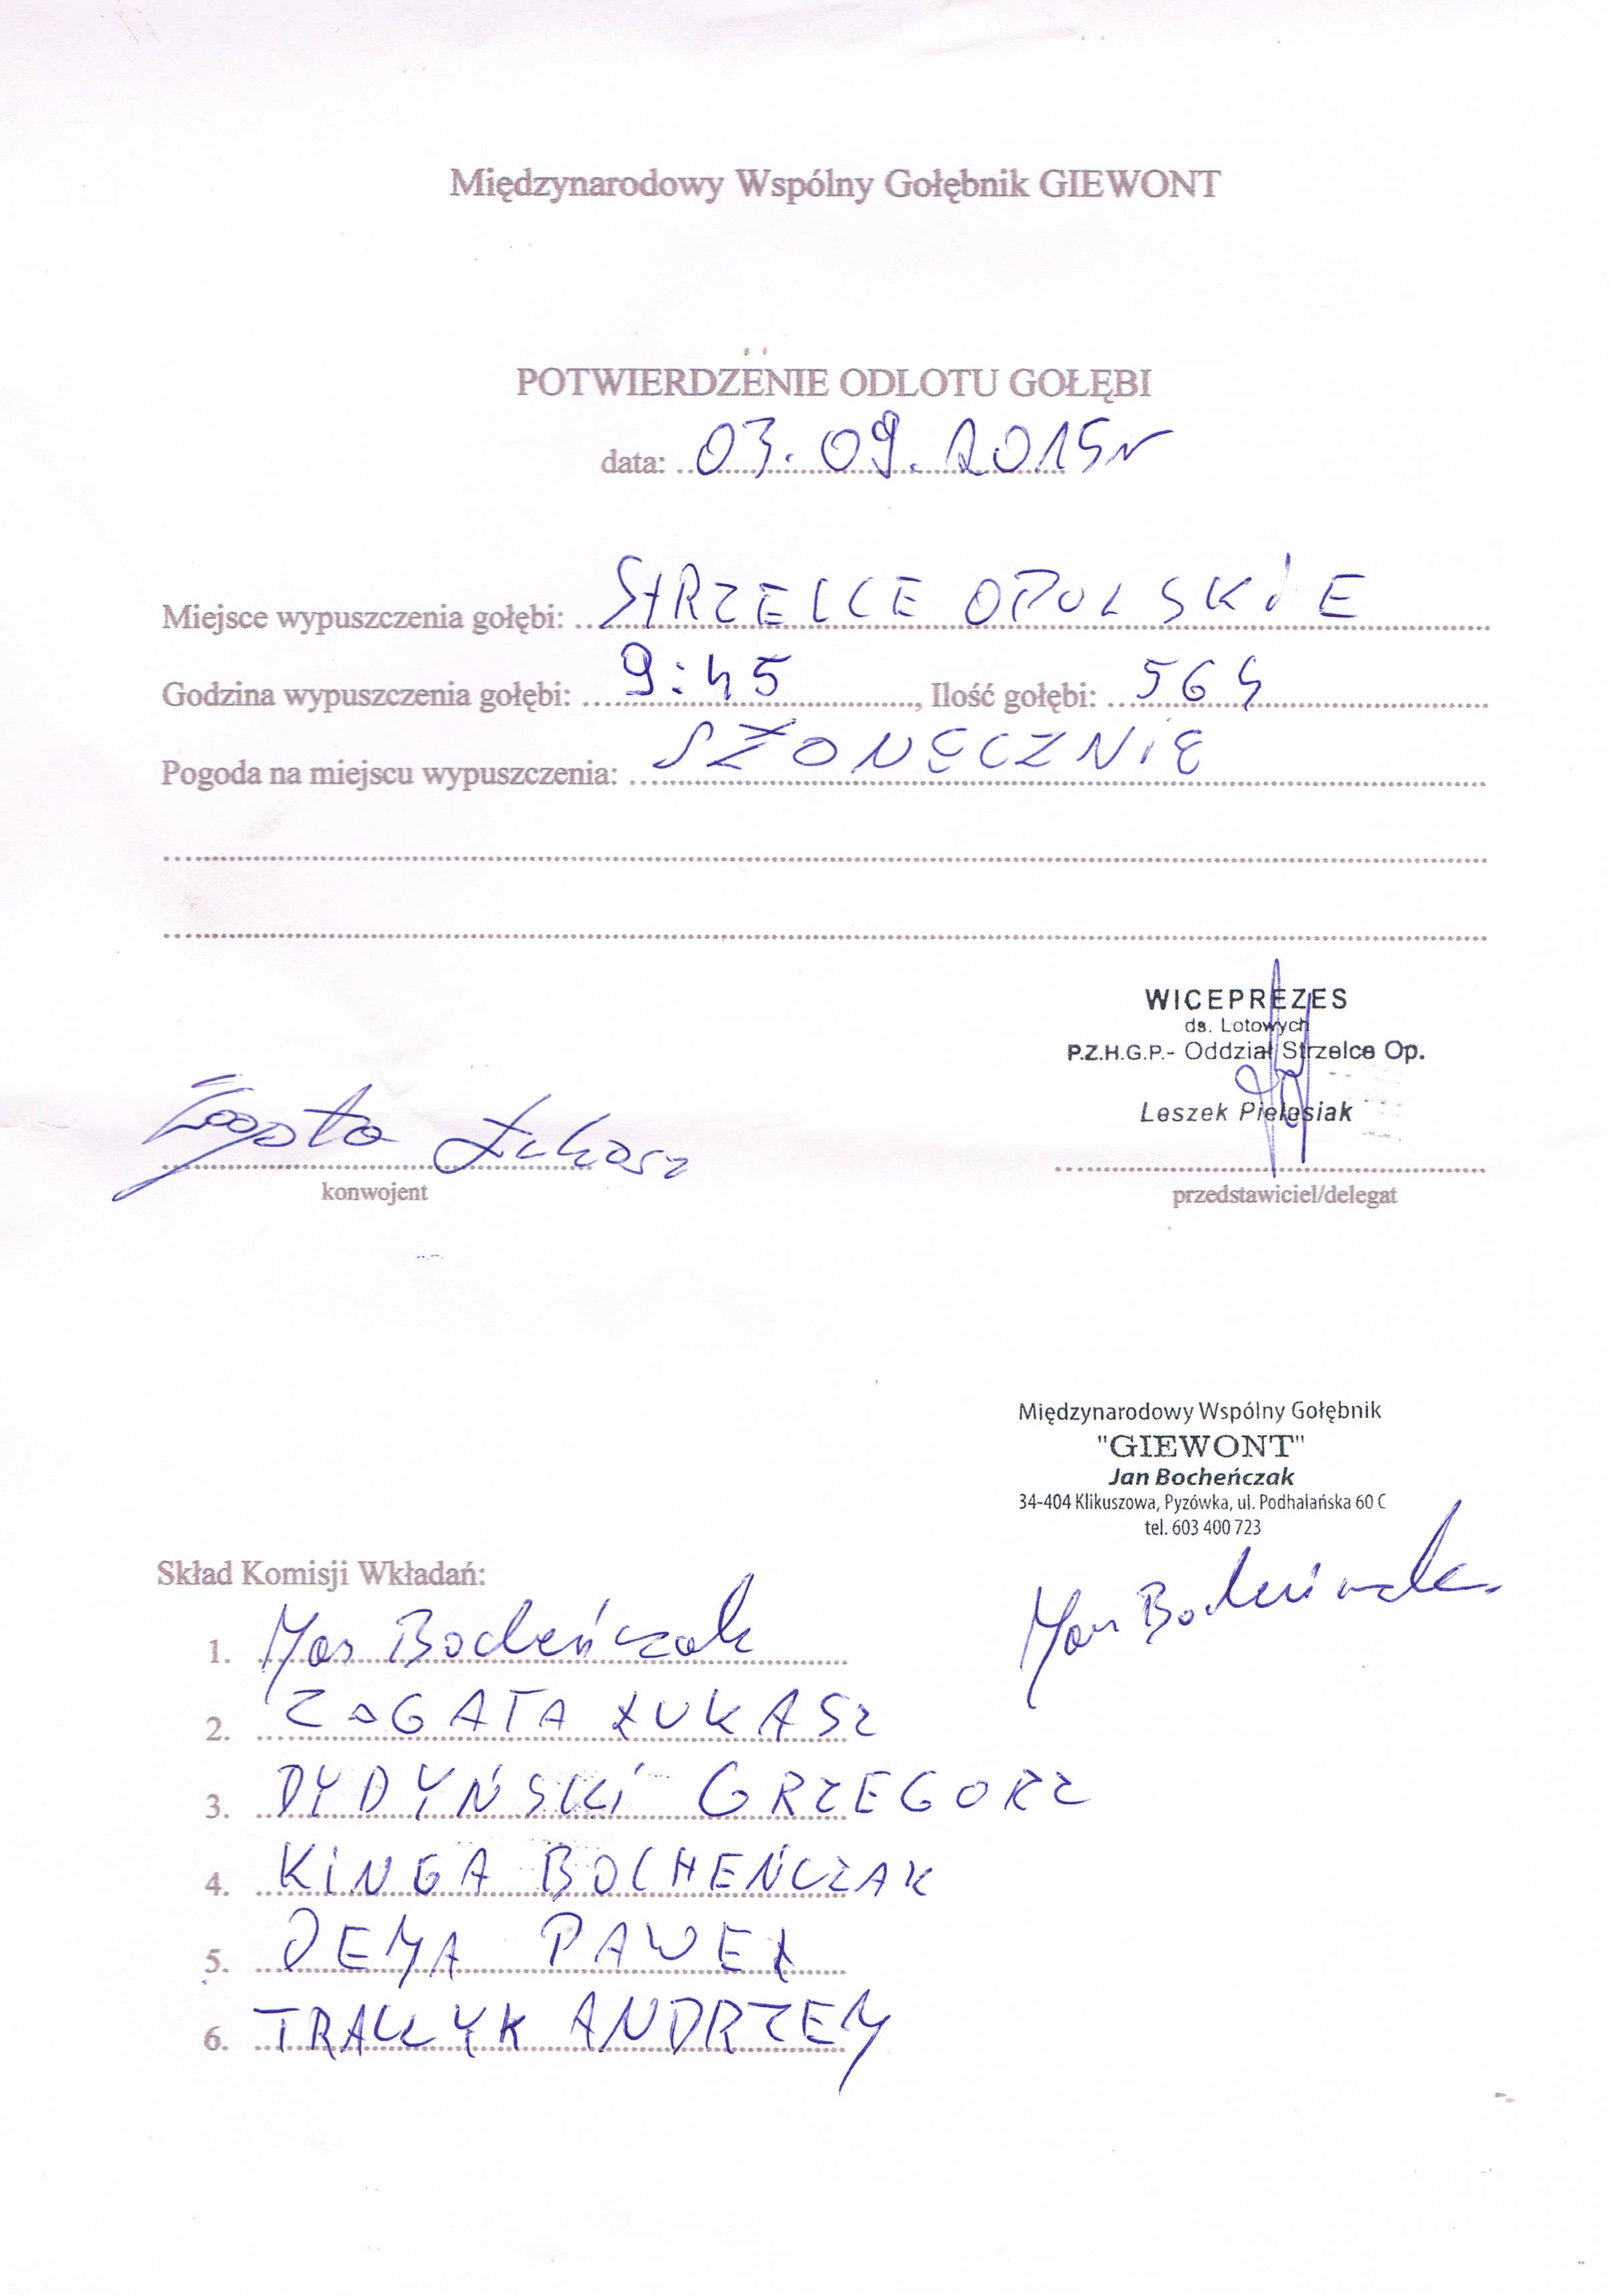 Międzynarodowy Wspólny Gołębnik GIEWONT
POTWIERDZENIE ODLOTU GOŁĘBI
data: 03.09.2015r
Miejsce wypuszczenia gołębi: STRZELCE OPOLSKIE
Godzina wypuszczenia gołębi: 9:45, Ilość gołębi: 564
Pogoda na miejscu wypuszczenia: SŁONECZNIE
WICEPREZES
ds. Lotowych
P.Z.H.G.P.- Oddział Strzelce Op.
Leszek Pielesiak
Łukasz
konwojent
przedstawiciel/delegat
Międzynarodowy Wspólny Gołębnik
"GIEWONT"
Jan Bocheńczak
34-404 Klikuszowa, Pyzówka, ul. Podhalańska 60 C
tel. 603 400 723
Skład Komisji Wkładań:
Jan Bocheńczak
1. Jan Bocheńczak
2. ZAGATA ŁUKASZ
3. DYDYŃSKI GRZEGORZ
4. KINGA BOCHEŃCZAK
5. PAWEŁ
6. TRALCZYK ANDRZEJ